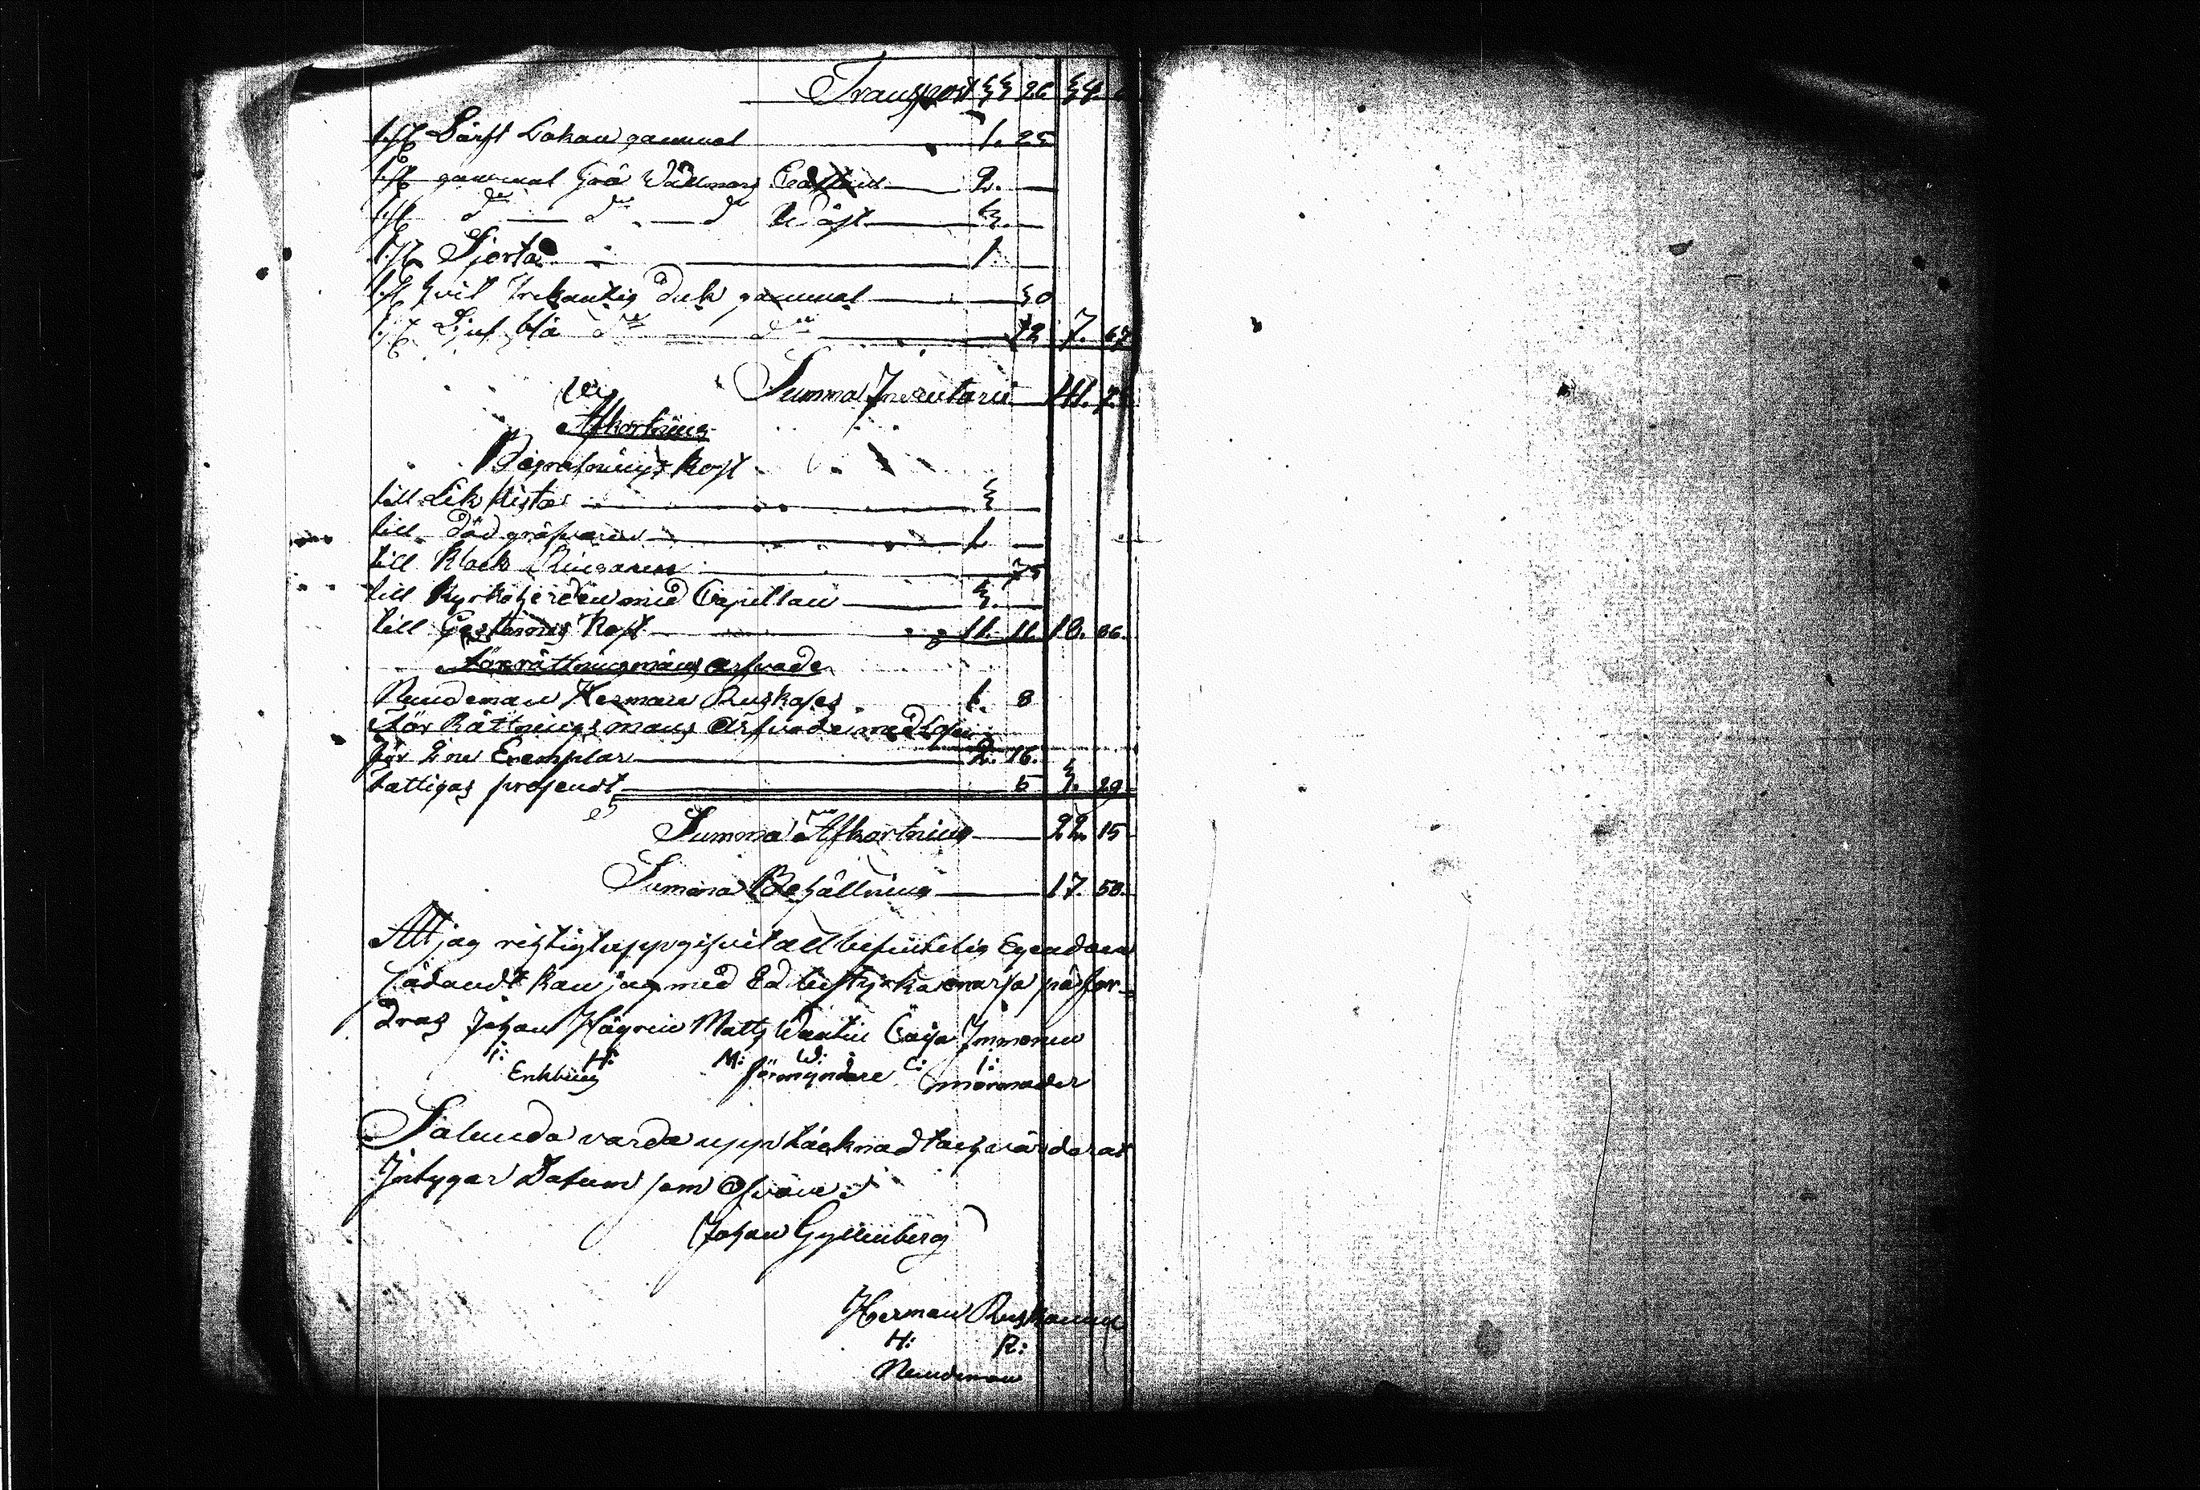 Transport 33 26 34
1 st Lärft Lakan gammal 1. 25
1 st gammal Grå Wallmars 2. —
1 st do — do — do Wäst 3. —
1 st Sjorta 1 —
1 st hvit trekantig duk gammal 30
1 st Ljus blå do — do 12 7. 67
Summa Inventarii 41.
Afkortning
Begrafnings kost
till Lik kista 3 —
till död gräfvaren 1 —
till klock Ringaren 75
till Kyrkoherden med Capellan 3. —
till Gestnings kost 11. 11 18. 86.
Förrättningsmans arfvade
Nemdeman Herman Ruskases 1. 8
För Rättnings mans Arfvade med
för Ene Exemplar 2. 16.
fattigas prosendt 5 3. 29
Summa Afkortning 22. 15
Summa Behållning 17. 58.
Att jag rigtigt uppgifvit all befintelig Egendom
sådandt kan jag med Ed bestyrka om så påfor-
dras Johan Hägren Matts Wantin Caisa Immonen
J: H: M: W: C: I:
Enkling förmyndare mormoder
Sålunda varda upp täcknad tach värderat
Intygar Datum som Ofvan
Johan Gyllenberg
Herman Ruskanen
H: R:
Nemdeman